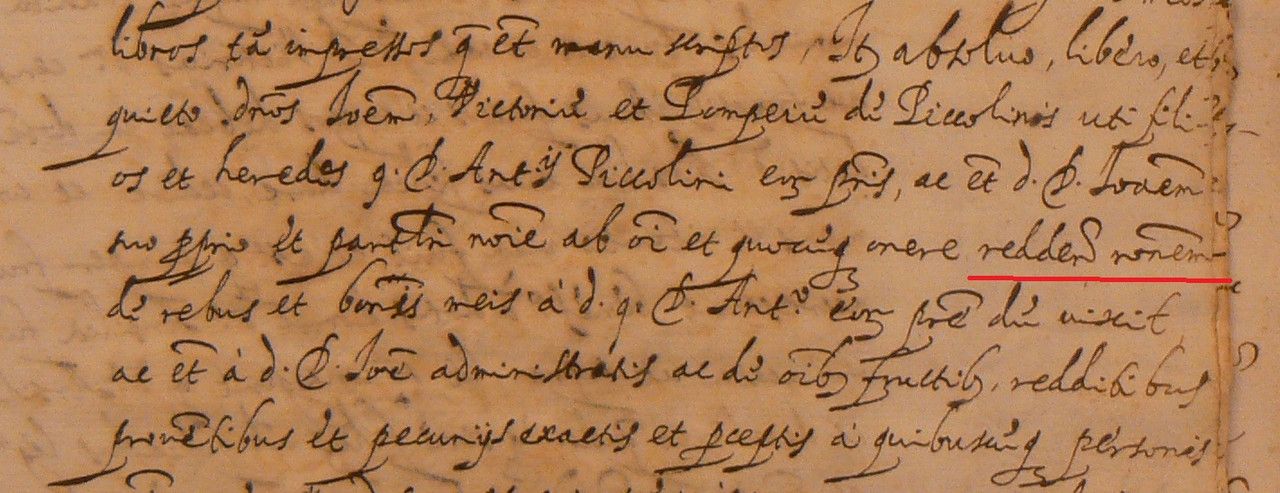 libros tā impressos q̄ et̄ manu scriptos, Itȝ absoluo, libero, et
quieto dn̄os Ioēm, Victoriū et Pompeiū de Piccolinis uti fili-
os et heredes q. D. Antij Piccolini eoꝝ pr̄is, ac et̄ d. D. Ioaēm
suo ꝓprio et par noīe ab oī et quocūq onere redden̄ ron̄em
de rebus et bonis meis à d. q. D. Antº. eoꝝ pr̄e dū uixit
ac et̄ à d. D. Ioē administratis ac de oīb fructib, redditibus
prouētibus et pecunijs exactis et ꝑceptis à quibuscūq personis